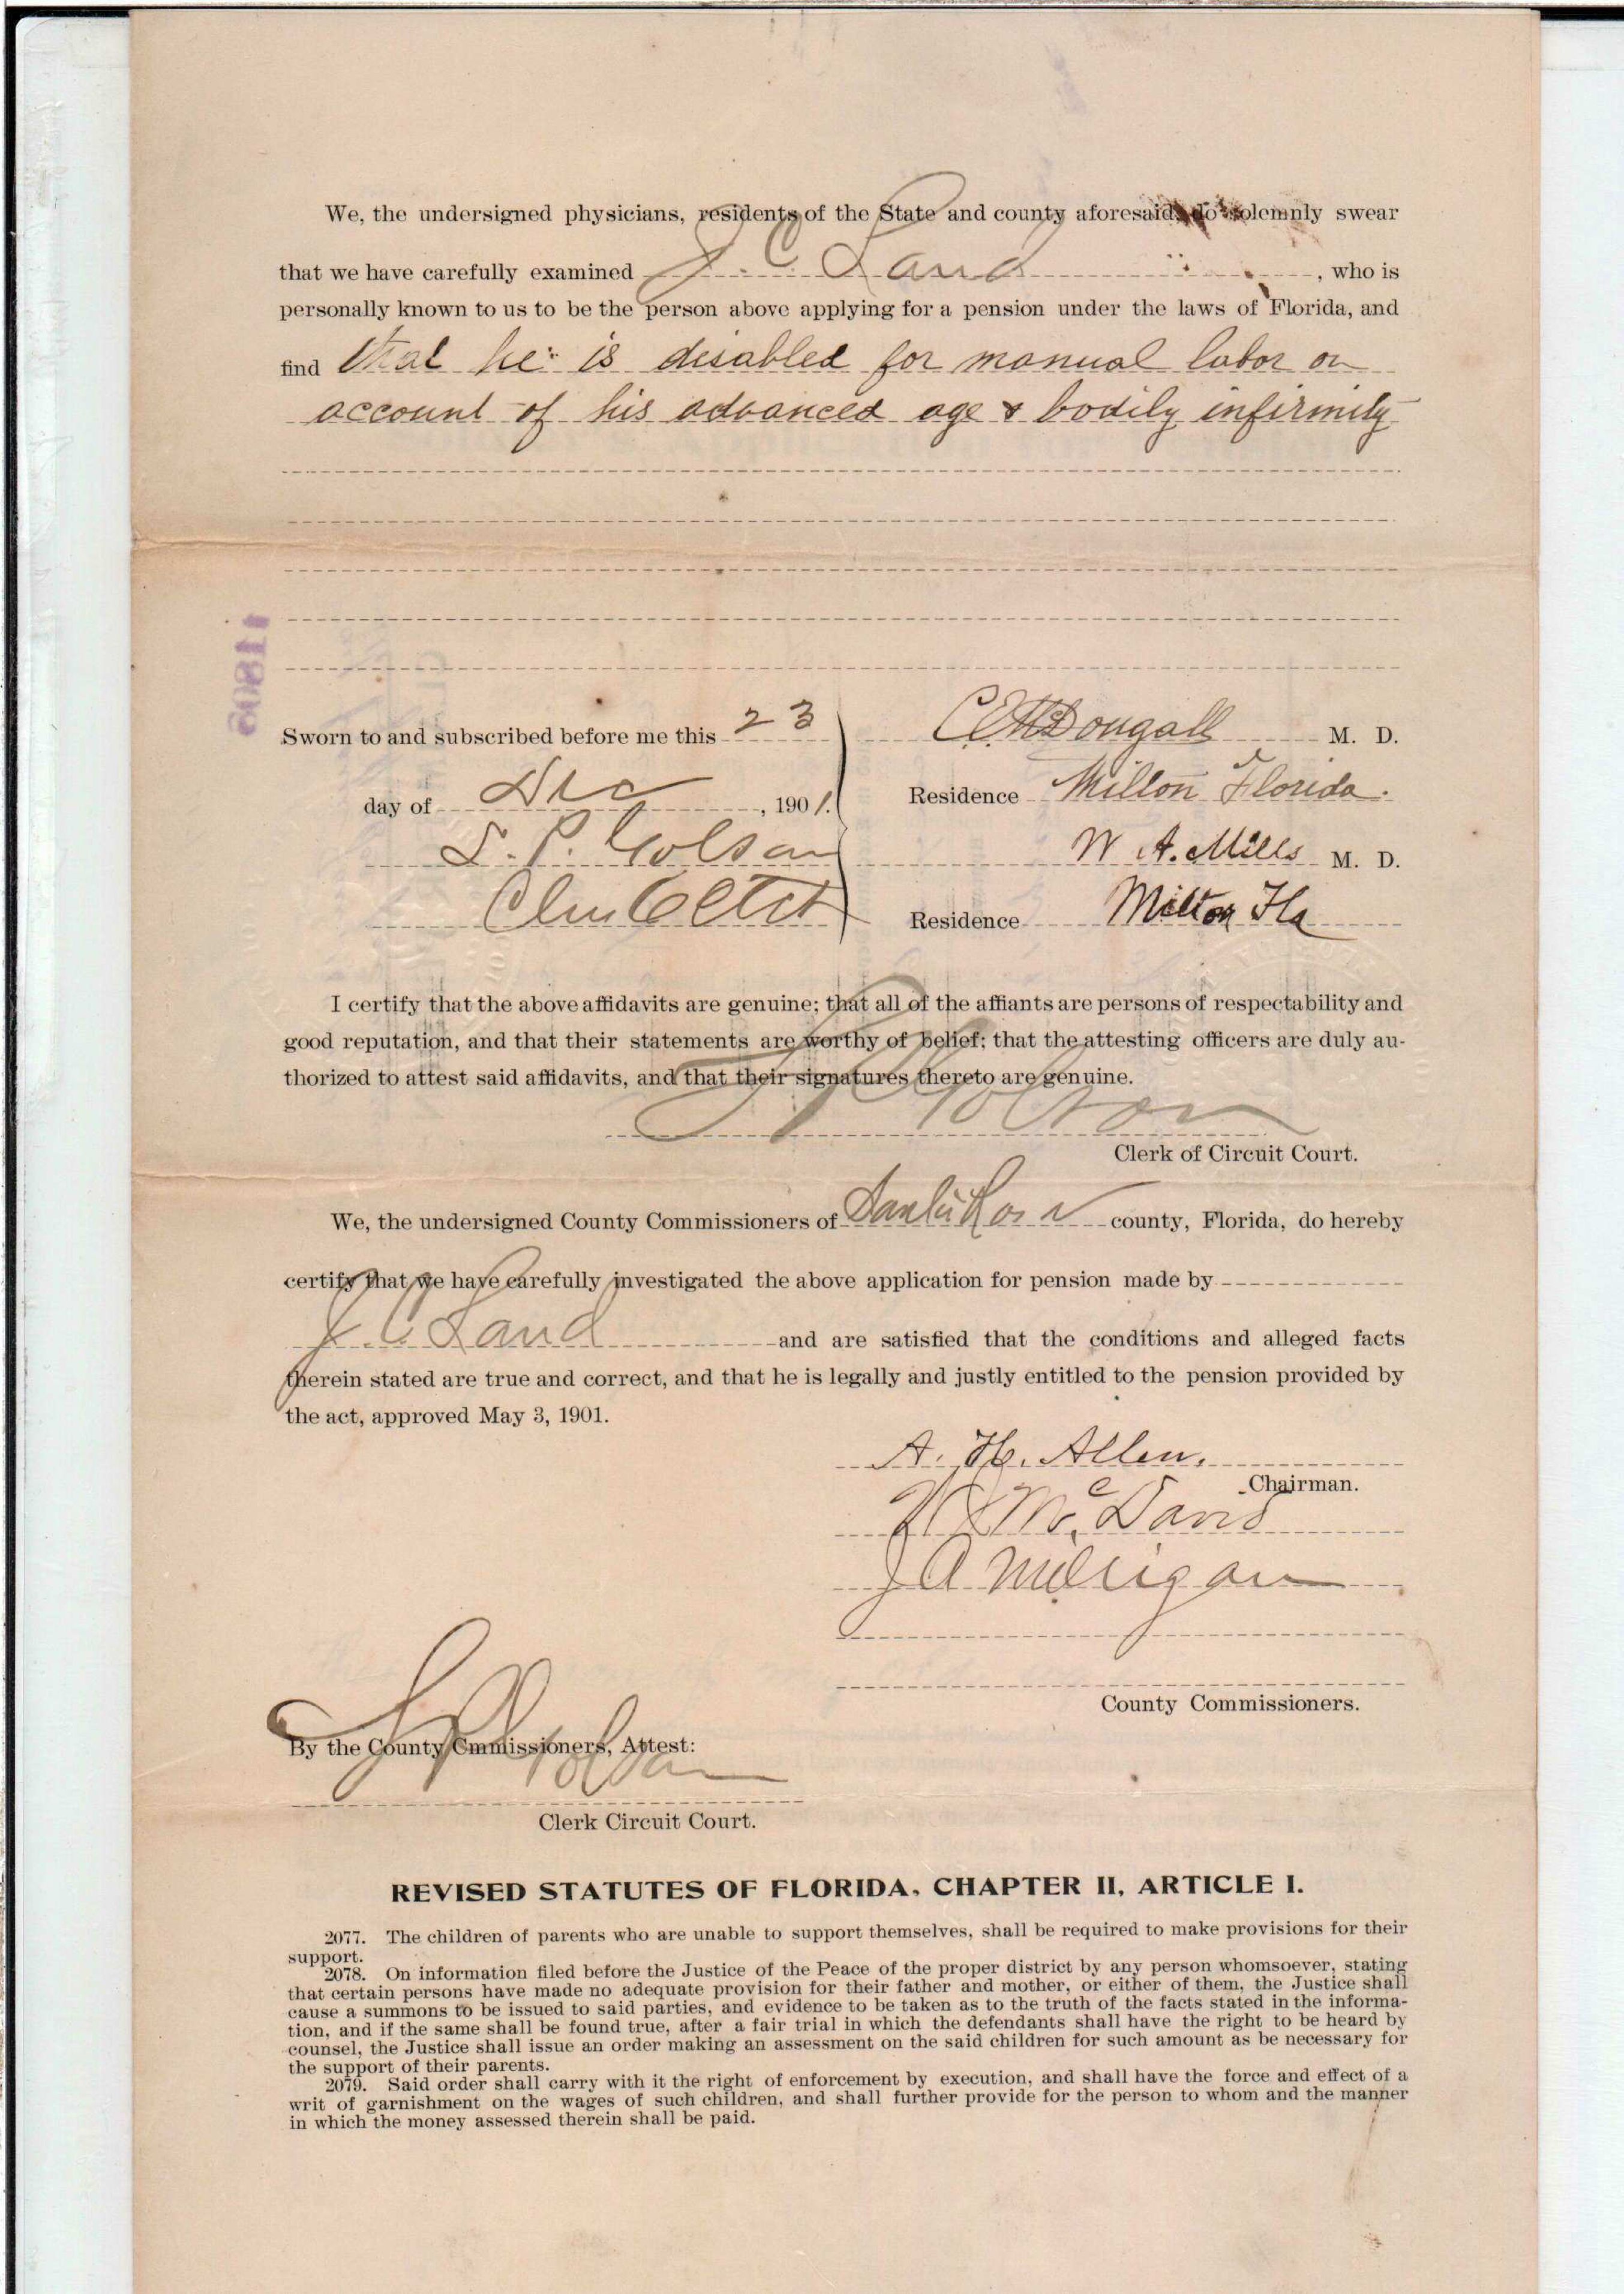 We, the undersigned physicians, residents of the State and county aforesaid, do solemnly swear
that we have carefully examined J. C. Land, who is
personally known to us to be the person above applying for a pension under the laws of Florida, and
find that he is disabled for manual labor on
account of his advanced age & bodily infirmity
11806
Sworn to and subscribed before me this 23
C. E. McDougall M. D.
day of Dec, 1901.
Residence Milton Florida.
S. P. Golson
W A. Mills M. D.
Clerk Ct Ct
Residence Milton Fla
I certify that the above affidavits are genuine; that all of the affiants are persons of respectability and
good reputation, and that their statements are worthy of belief; that the attesting officers are duly au-
thorized to attest said affidavits, and that their signatures thereto are genuine.
S P Golson
Clerk of Circuit Court.
We, the undersigned County Commissioners of Santa Rosa county, Florida, do hereby
certify that we have carefully investigated the above application for pension made by
J. C. Land and are satisfied that the conditions and alleged facts
therein stated are true and correct, and that he is legally and justly entitled to the pension provided by
the act, approved May 3, 1901.
A. H. Allen.
Chairman.
McDavid
J A Milligan
County Commissioners.
By the County Cmmissioners, Attest:
S P Golson
Clerk Circuit Court.
REVISED STATUTES OF FLORIDA, CHAPTER II, ARTICLE I.
2077. The children of parents who are unable to support themselves, shall be required to make provisions for their
support.
2078. On information filed before the Justice of the Peace of the proper district by any person whomsoever, stating
that certain persons have made no adequate provision for their father and mother, or either of them, the Justice shall
cause a summons to be issued to said parties, and evidence to be taken as to the truth of the facts stated in the informa-
tion, and if the same shall be found true, after a fair trial in which the defendants shall have the right to be heard by
counsel, the Justice shall issue an order making an assessment on the said children for such amount as be necessary for
the support of their parents.
2079. Said order shall carry with it the right of enforcement by execution, and shall have the force and effect of a
writ of garnishment on the wages of such children, and shall further provide for the person to whom and the manner
in which the money assessed therein shall be paid.